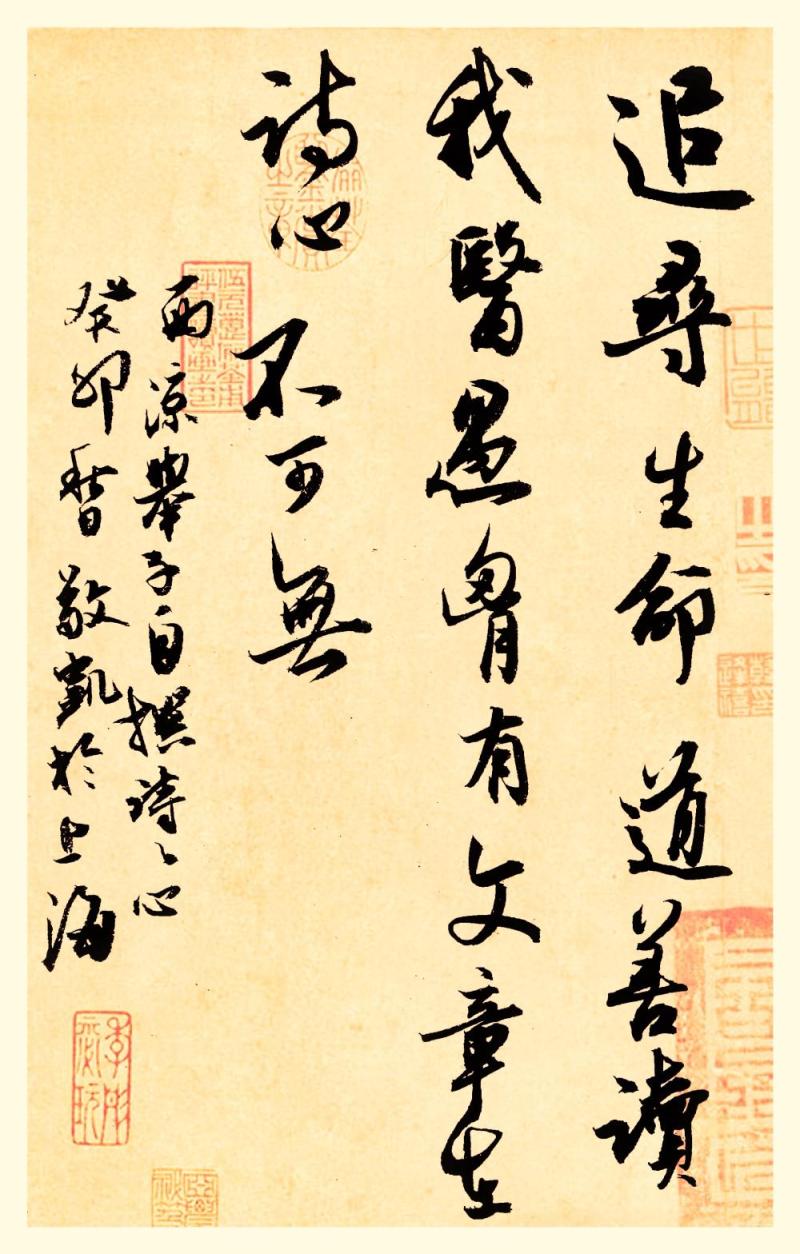 追尋生命道善讀
我醫愚胷有文章在
詩心不可無
西凉舉子自撰詩〻心
癸卯春敬凱於上海